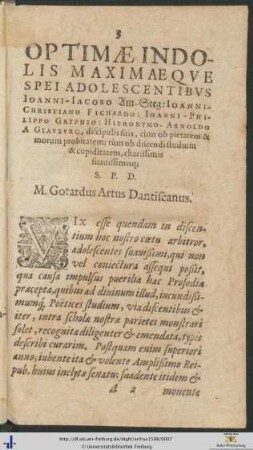 3
OPTIMÆ INDO-
LIS MAXIMAEQVE
SPEI ADOLESCENTIBVS
IOANNI-IACOBO Im-Steg: IOANNI-
CHRISTIANO FICHARDO: IOANNI-PHI-
LIPPO GRYPHIO: HIERONYMO-ARNOLDO
A GLAVBVRG, discipulis suis, cùm ob pietatem &
morum probitatem; tùm ob discendi studium
& cupiditatem, charissimis
suauissimisq;
S. P. D.
M. Gotardus Artus Dantiscanus.
VIX esse quendam in discen-
tium hoc nostro cœtu arbitror,
adolescentes suauissimi, qui non
vel coniectura assequi possit,
qua causa impulsus puerilia hæc Prosodiæ
præcepta, quibus ad diuinum illud, iucundissi-
mumq; Poëtices studium, via discentibus &
iter, intra scholæ nostræ parietes monstrari
solet, recognita diligenter & emendata, typis
describi curarim. Postquam enim superiori
anno, iubente ita & volente Amplissimo Rei-
pub. huius inclytæ senatu: suadente itidem &
A 2 monente
http://dl.ub.uni-freiburg.de/diglit/artus1598/0007
© Universitätsbibliothek Freiburg